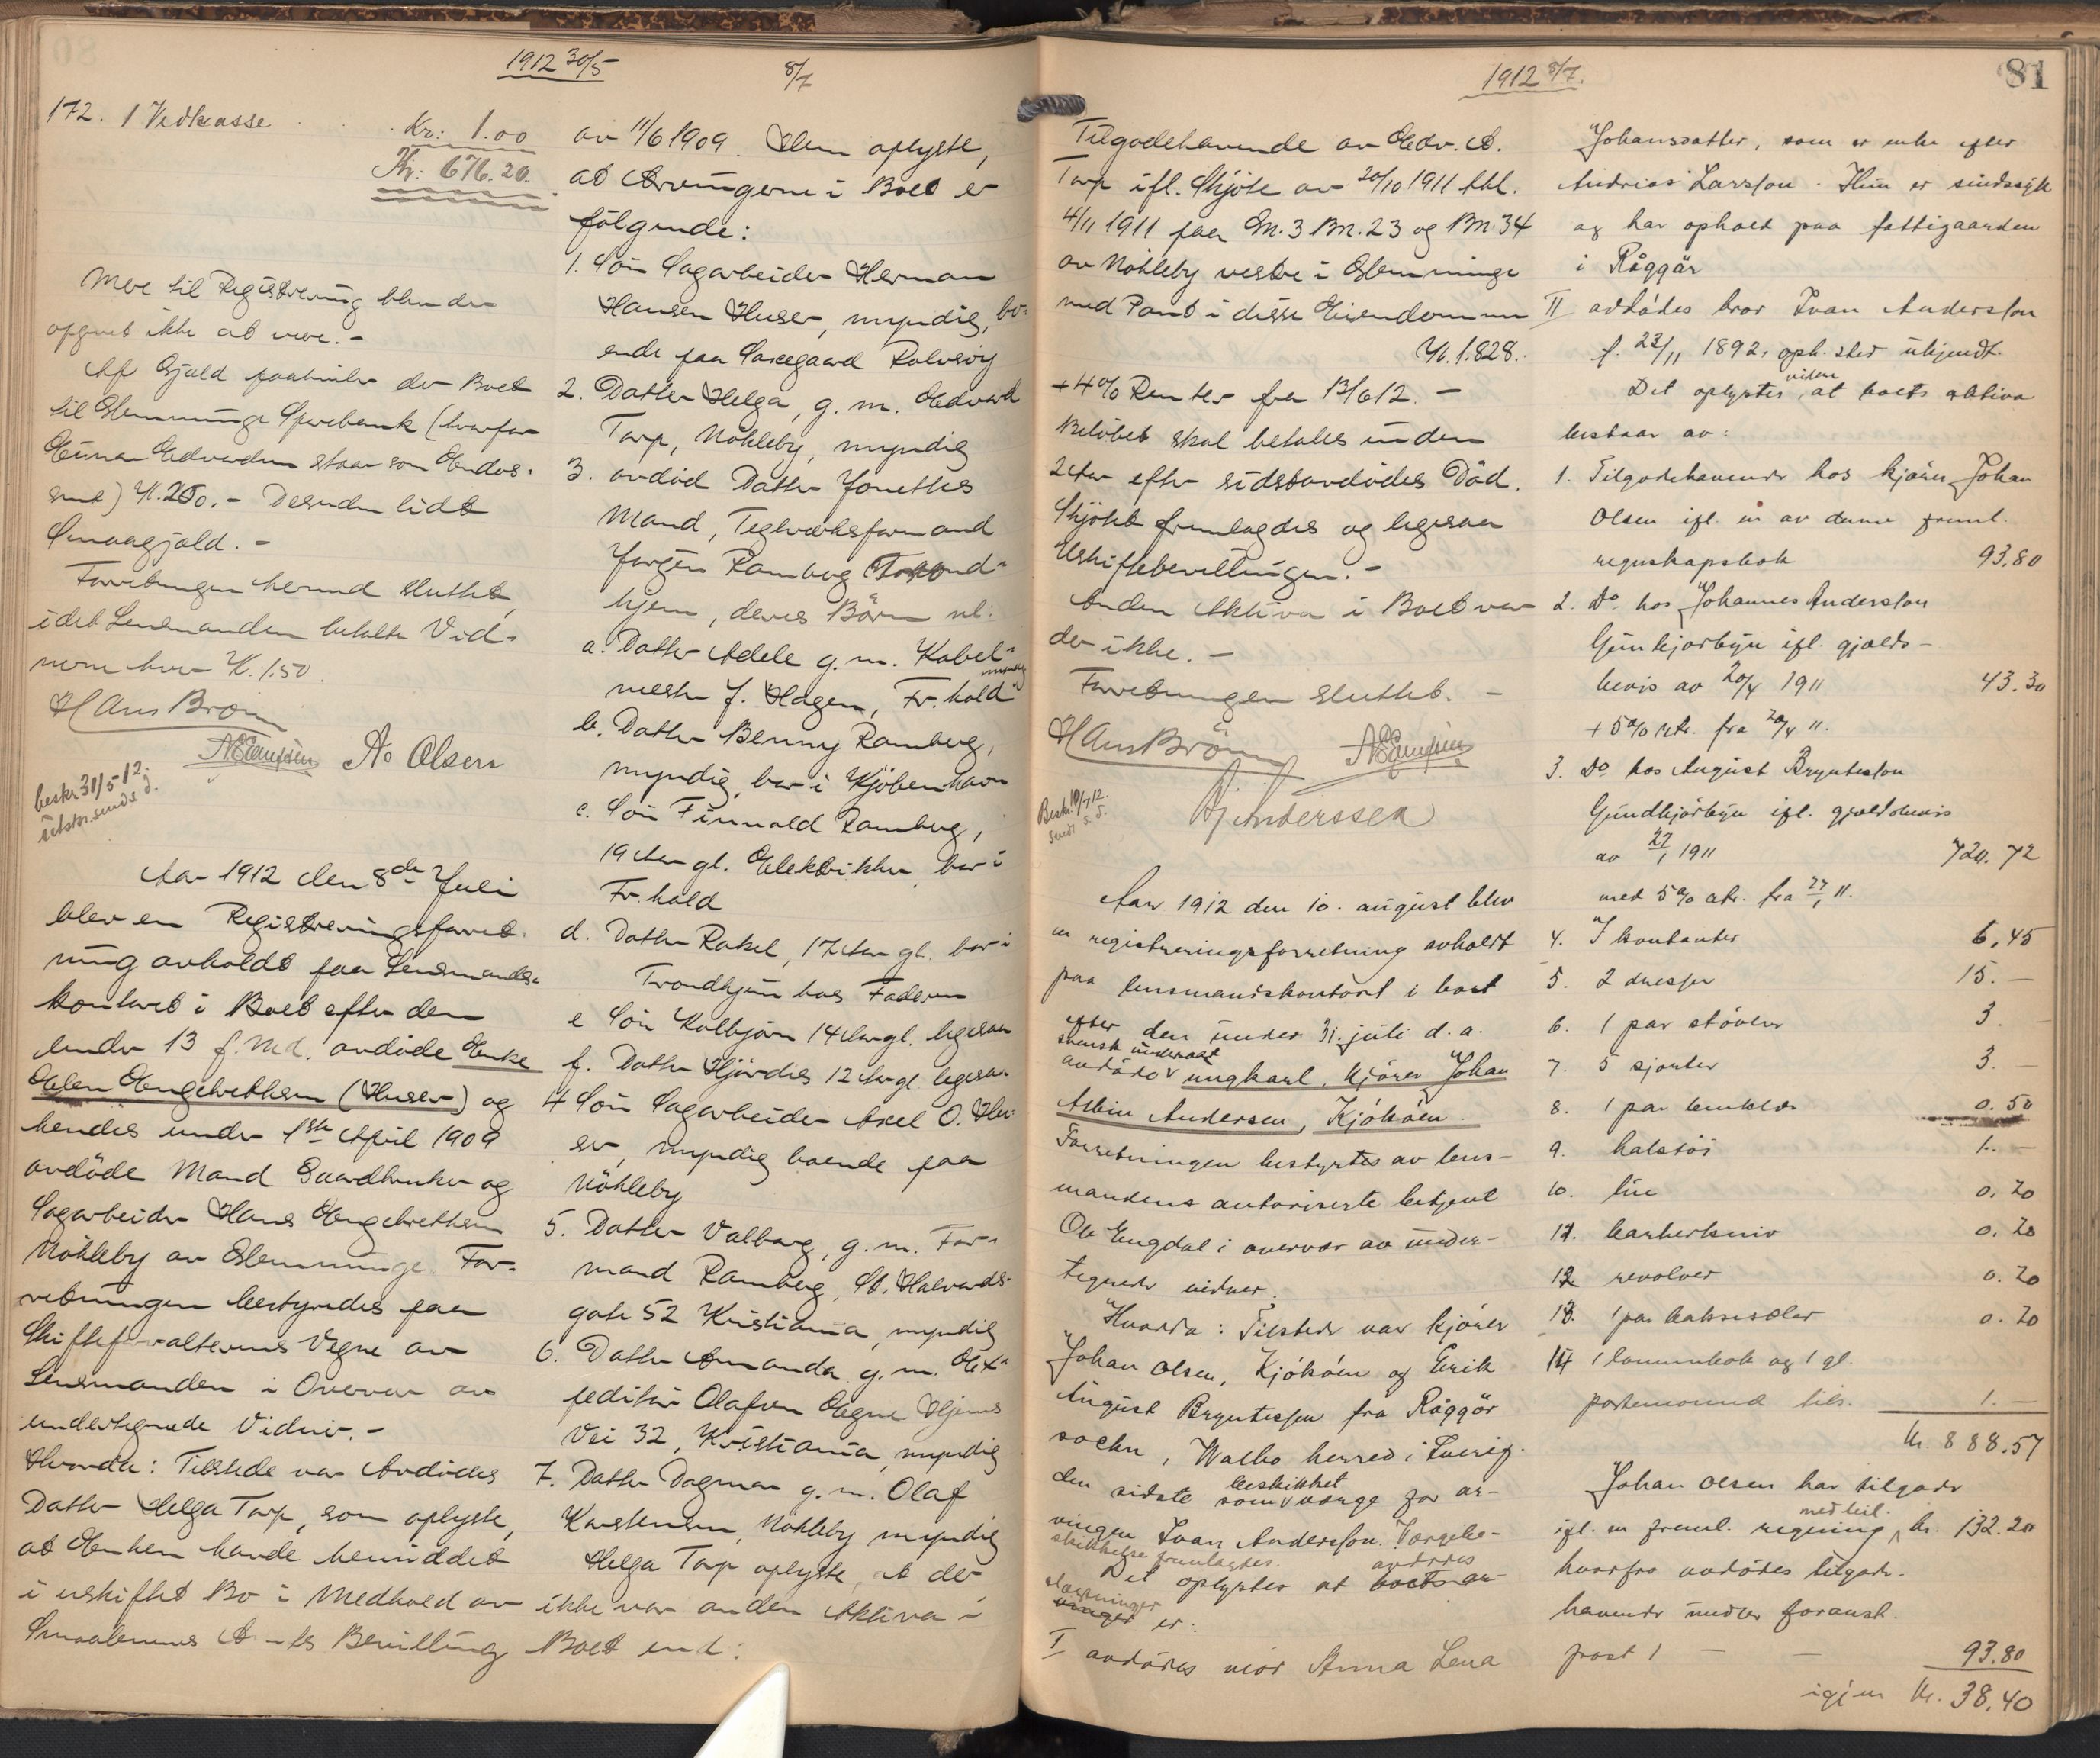 80
1912 30/5
8/7
172. 1 Vedkasse . . Kr: 1.00
Kr: 676.20.
Mere til Registrering blev der
opgivet ikke at være.-
Af Gjæld paahviler der Boet
til Glemminge Sparebank (hvorfor
Einar Edvardsen staar som Endos-
sent) Kr. 250.- Desuden lidt
Smaagjæld.-
Forretningen hermed sluttet,
idet Lensmanden betalte Vid-
nerne hver Kr. 1.50.
Hans Brøm
A. Olsen
beskr. 31/5-12.
Aar 1912 den 8de Juli
blev en Registreringsforret-
ning avholdt paa Lensmands-
kontoret i Boet efter den
under 13 f. Md. avdøde Enke
Olen Engebrethsen (Huser) og
hendes under 1ste April 1909
avdøde Mand Gaardbruker og
Sagarbeider Hans Engebrethsen
Nøkleby av Glemminge. For-
retningen bestyredes paa
Skifteforvalterens Vegne av
Lensmanden i Overvær av
undertegnede Vidner.-
Hvorda: Tilstede var Avdødes
Datter Helga Torp, som oplyste,
at Enken havde hensiddet
i uskiftet Bo i Medhold av
Smaalenenes Amts Bevilling
av 11/6 1909. Hun oplyste,
at Arvingerne i Boet er
følgende:
1. Søn Sagarbeider Herman
Hansen Huser, myndig, bo-
ende paa Rolvsøy
2. Datter Helga, g. m. Edvard
Torp, Nøkleby, myndig
3. avdød Datter Jonettes
Mand, Teglværksformand
Jørgen Ramberg Trond-
hjem, deres Børn nl:
a. Datter Adele g. m. Kabel-
mester J. Hagen, Fr.hald
myndig
b. Datter Benny Ramberg,
myndig, bor i Kjøbenhavn
c. Søn Finnald Ramberg,
19 Aar gl. Elektriker, bor i
Fr.hald
d. Datter Rakel, 17 Aar gl. bor i
Trondhjem hos Faderen
e Søn Kolbjørn 14 Aar gl. ligesaa
f. Datter Hjørdis 12 Aar gl. ligesaa
4 Søn Sagarbeider Axel O. Hu-
ser, myndig boende paa
Nøkleby
5. Datter Valborg, g. m. For-
mand Ramberg, St. Halvards-
gate 52 Kristiania, myndig
6. Datter Amanda g. m. Eks-
peditør Olafsen Hjems
Vei 32, Kristiania, myndig
7. Datter Dagmar g. m. Olaf
Karstensen, Nøkleby myndig
Helga Torp oplyste, at der
ikke var anden Aktiva i
Boet end:
1912 8/7.
81
Tilgodehavende av Edv. A.
Torp ifl. Skjøte av 20/10 1911 thl.
4/11 1911 paa Gn. 3 Bn. 23 og Bn. 34
av Nøkleby vestre i Glemminge
med Pant i disse Eiendommen
Kr. 1.828..
+ 4% Renter fra 13/6 12. -
Beløbet skal betales inden
2 Aar efter sidstavdødes Død.
Skjøtet fremlagdes og ligesaa
Uskiftebevillingen.-
Anden Aktiva i Boet var
der ikke.-
Forretningen sluttet. -
Hans Brøm
Hj. Anderssen
Beskr. 10/7 12.
sendt s. d.
Aar 1912 den 10. august blev
en registreringsforretning avholdt
paa lensmandskontoret i boet
efter den under 31. juli d. a.
svensk undersaat
avdøde ungkarl, kjører Johan
Albin Andersen, Kjøkøen.
Forretningen bestyrtes av lens-
mandens autoriserte betjent
Ole Engdal i overvær av under-
tegnede vidner.
Hvorda: Tilstede var kjører
Johan Olsen, Kjøkøen og Erik
August Bryntesson fra Råggär
socken, Walbo herred i Sverig.
den sidste som beskikket værge for ar-
vingen Ivar Andersson. Værgebe-
skikkelse fremlagdes.
Det oplystes at avdødes boets ar-
slægtninger
vinger er:
I avdødes mor Anna Lena
Johansdatter, som er enke efter
Andreas Larsson. Hun er sindssyk
og har ophold paa fattiggaarden
i Råggär
II avdødes bror Ivar Andersson
f. 23/11 1892, oph. sted ukjendt.
Det oplystes videre, at boets aktiva
bestaar av:
1. Tilgodehavende hos kjører Johan
Olsen ifl. en av denne freml.
regnskapsbok 93.80
2. Do hos Johannes Andersson
ifl. gjælds-
bevis av 20/4 1911 43.30
+ 5% rtr. fra 20/4 11.
3. Do hos August Bryntesson
ifl. gjældsbevis
av 27/1 1911 720.72
med 5% rtr. fra 27/1 11.
4. I kontanter 6,45
5. 2 dresser 15.-
6. 1 par støvler 3.-
7. 5 sjorter 3.-
8. 1 par benklær 0.50
9. halstøi 1.-
10. lue 0.20
11. barberkniv 0.20
12 revolver 0.20
13. 1 par buksesæler 0.20
14 1 lommebok og 1 gl.
portemonnæ tils. 1.-
Kr. 888.57
Johan Olsen har tilgode
ifl. en freml. regning med bil. kr. 132.20
hvorfra avdødes tilgode-
havende under foranst.
post 1 - - 93.80
igjen Kr. 38.40